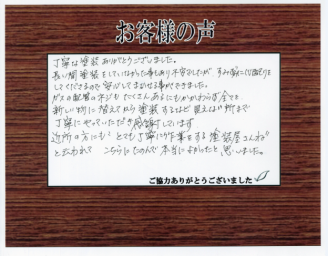 お客様の声
丁寧な塗装ありがとうございました。
長い間塗装をしていなかった事もあり不安でしたが、すみ
してくださるので安心してまかせる事ができました。
ガスの配管のネジもたくさんあるにもかかわらず全てを
新しい物に替えてから塗装するなど見えない所まで
丁寧にやっていただき感謝しています
近所の方にも、とても丁寧に作業をする塗装屋さんね
と言われて こちらにたのんで本当によかったと思いました。
ご協力ありがとうございました